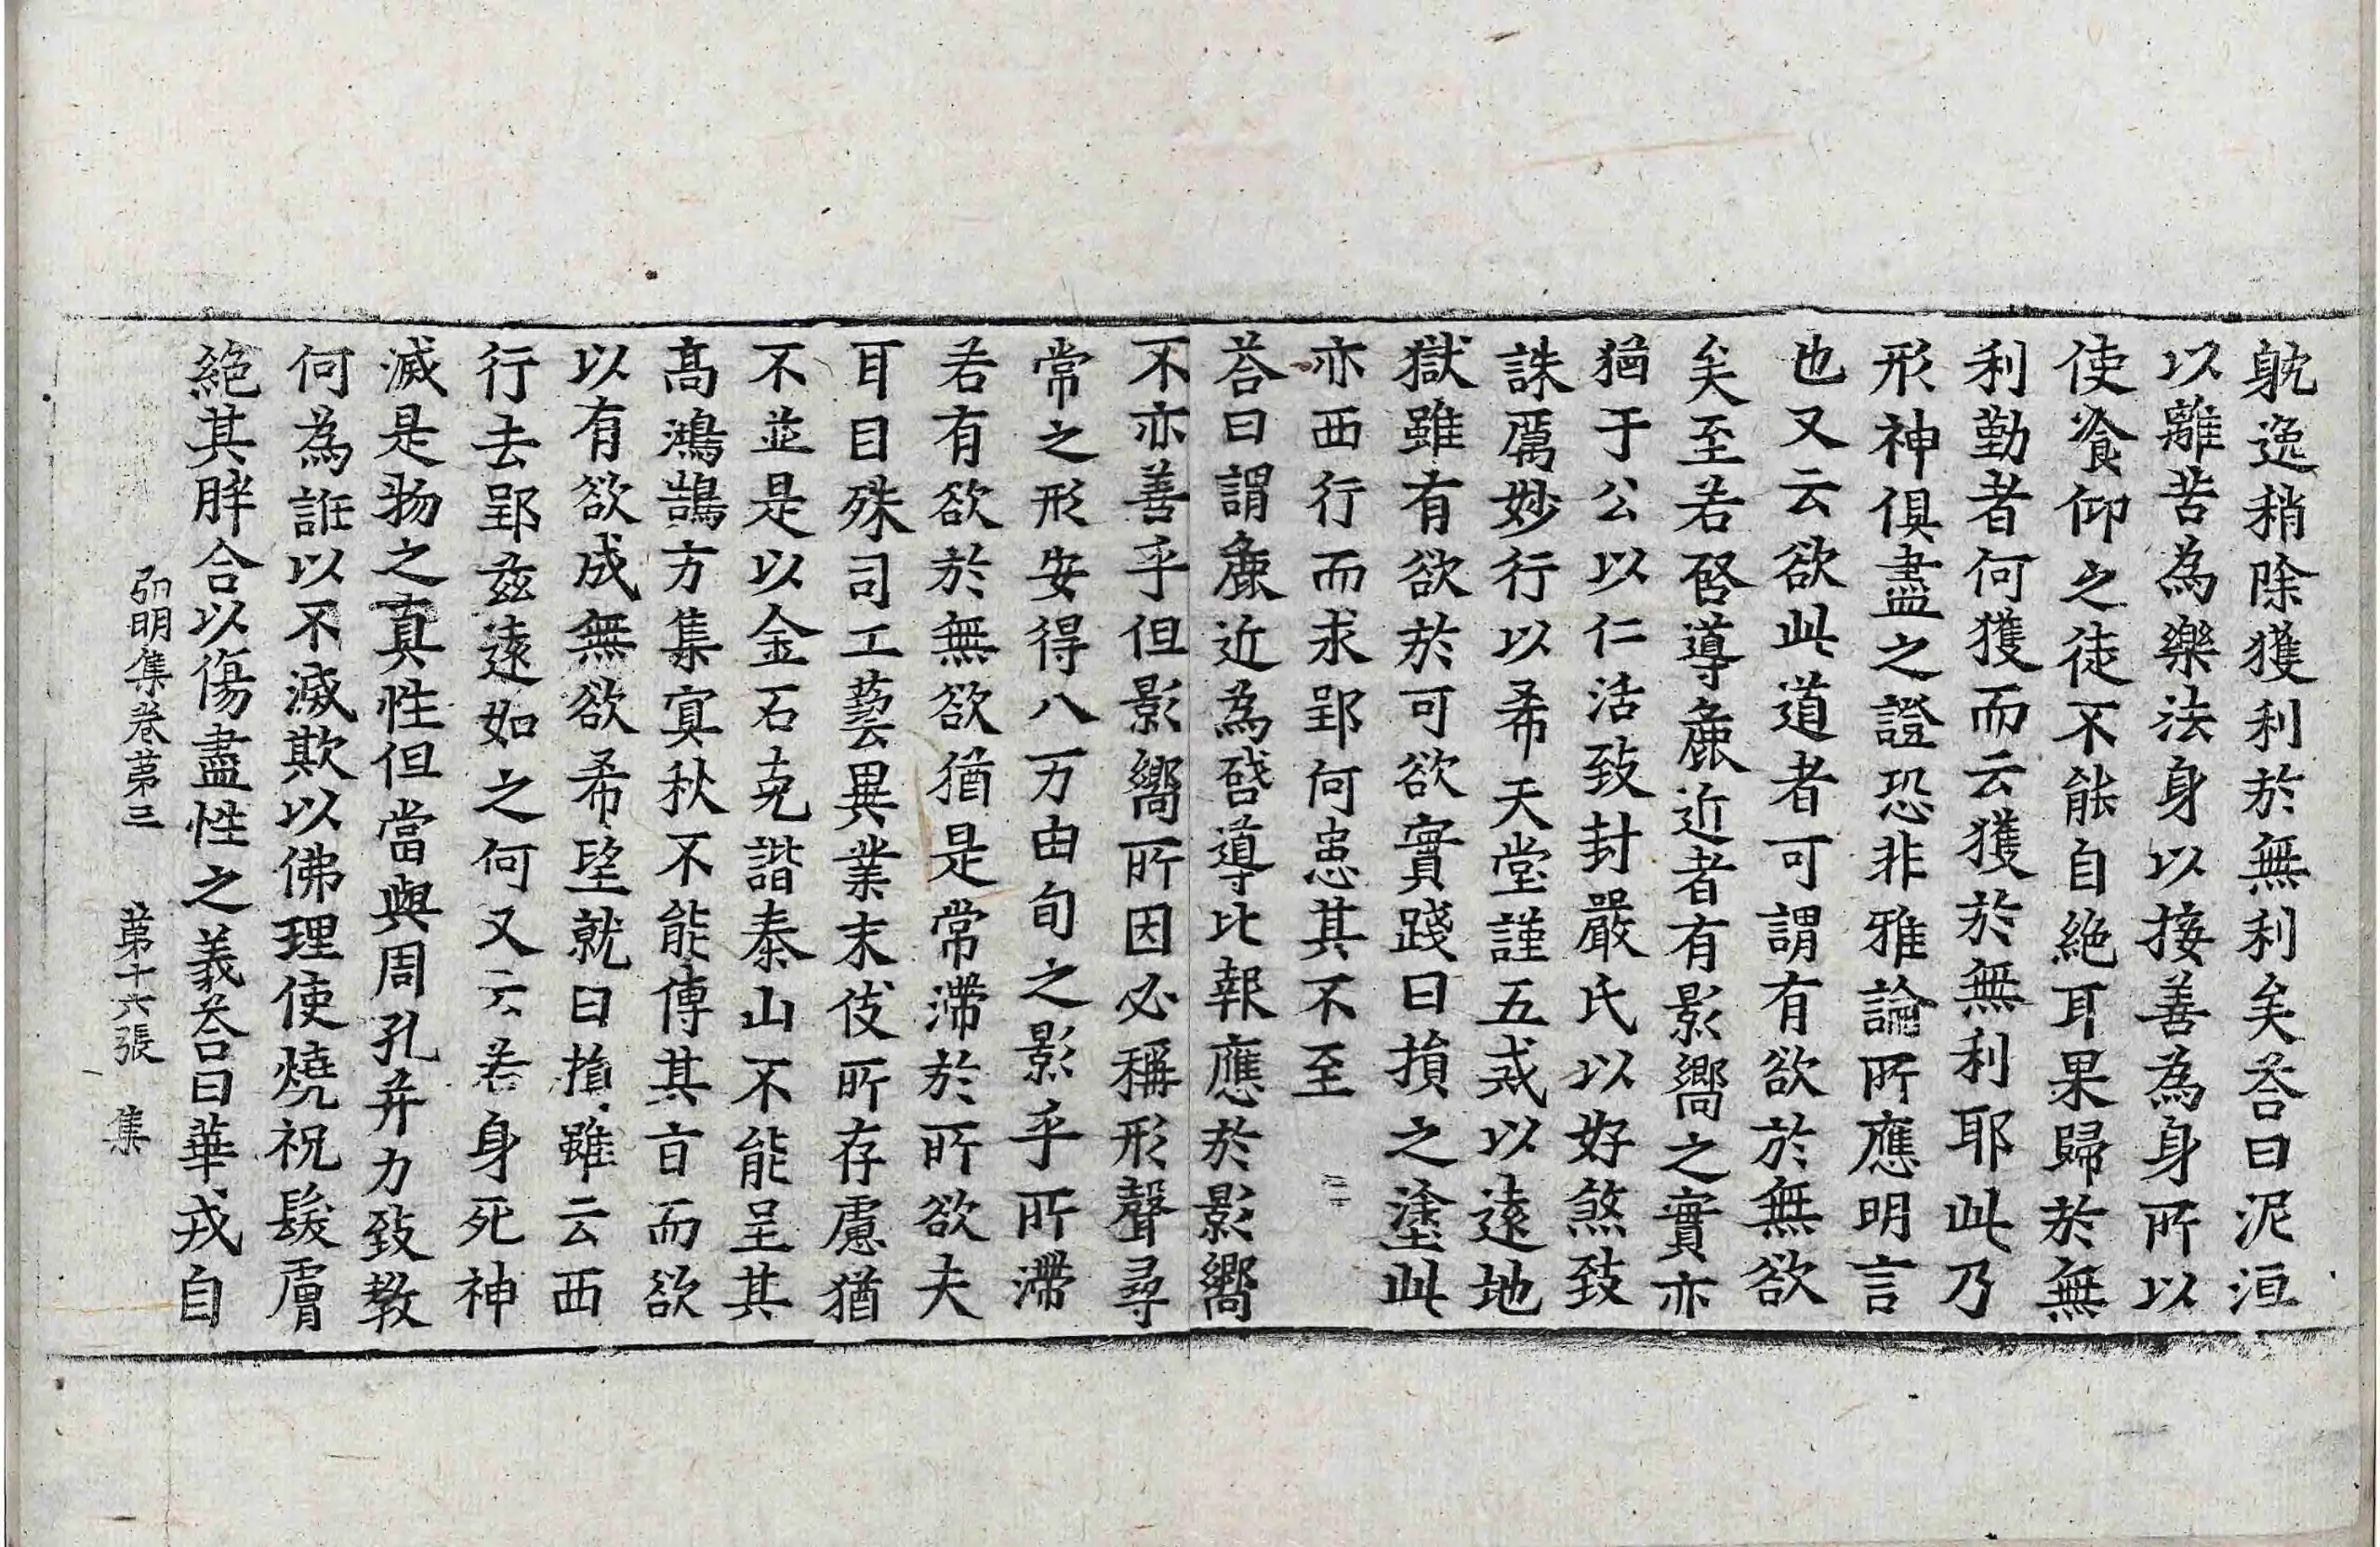 躭逸稍除獲利於無利矣荅曰泥洹
以離苦為樂法身以接善為身所以
使飡仰之徒不能自絶耳果歸於無
利勤者何獲而云獲於無利耶此乃
形神俱盡之證恐非雅論所應明言
也又云欲此道者可謂有欲於無欲
矣至若啓導麁近者有影嚮之實亦
猶于公以仁活致封嚴氏以好煞致
誅厲妙行以希天堂謹五戒以遠地
獄雖有欲於可欲實踐日損之塗此
亦西行而求郢何患其不至
荅曰謂麁近為啓導比報應於影嚮
不亦善乎但影嚮所因必稱形聲尋
常之形安得八万由旬之影乎所滯
若有欲於無欲猶是常滯於所欲夫
耳目殊司工藝異業末伎所存慮猶
不並是以金石克諧泰山不能呈其
髙鴻鵠方集寘秋不能傳其旨而欲
以有欲成無欲希望就日損雖云西
行去郢兹遠如之何又云若身死神
滅是物之真性但當與周孔并力致教
何為誑以不滅欺以佛理使燒祝髮膚
絶其胖合以傷盡性之義荅曰華戎自
弘明集卷苐三 苐十六張 集